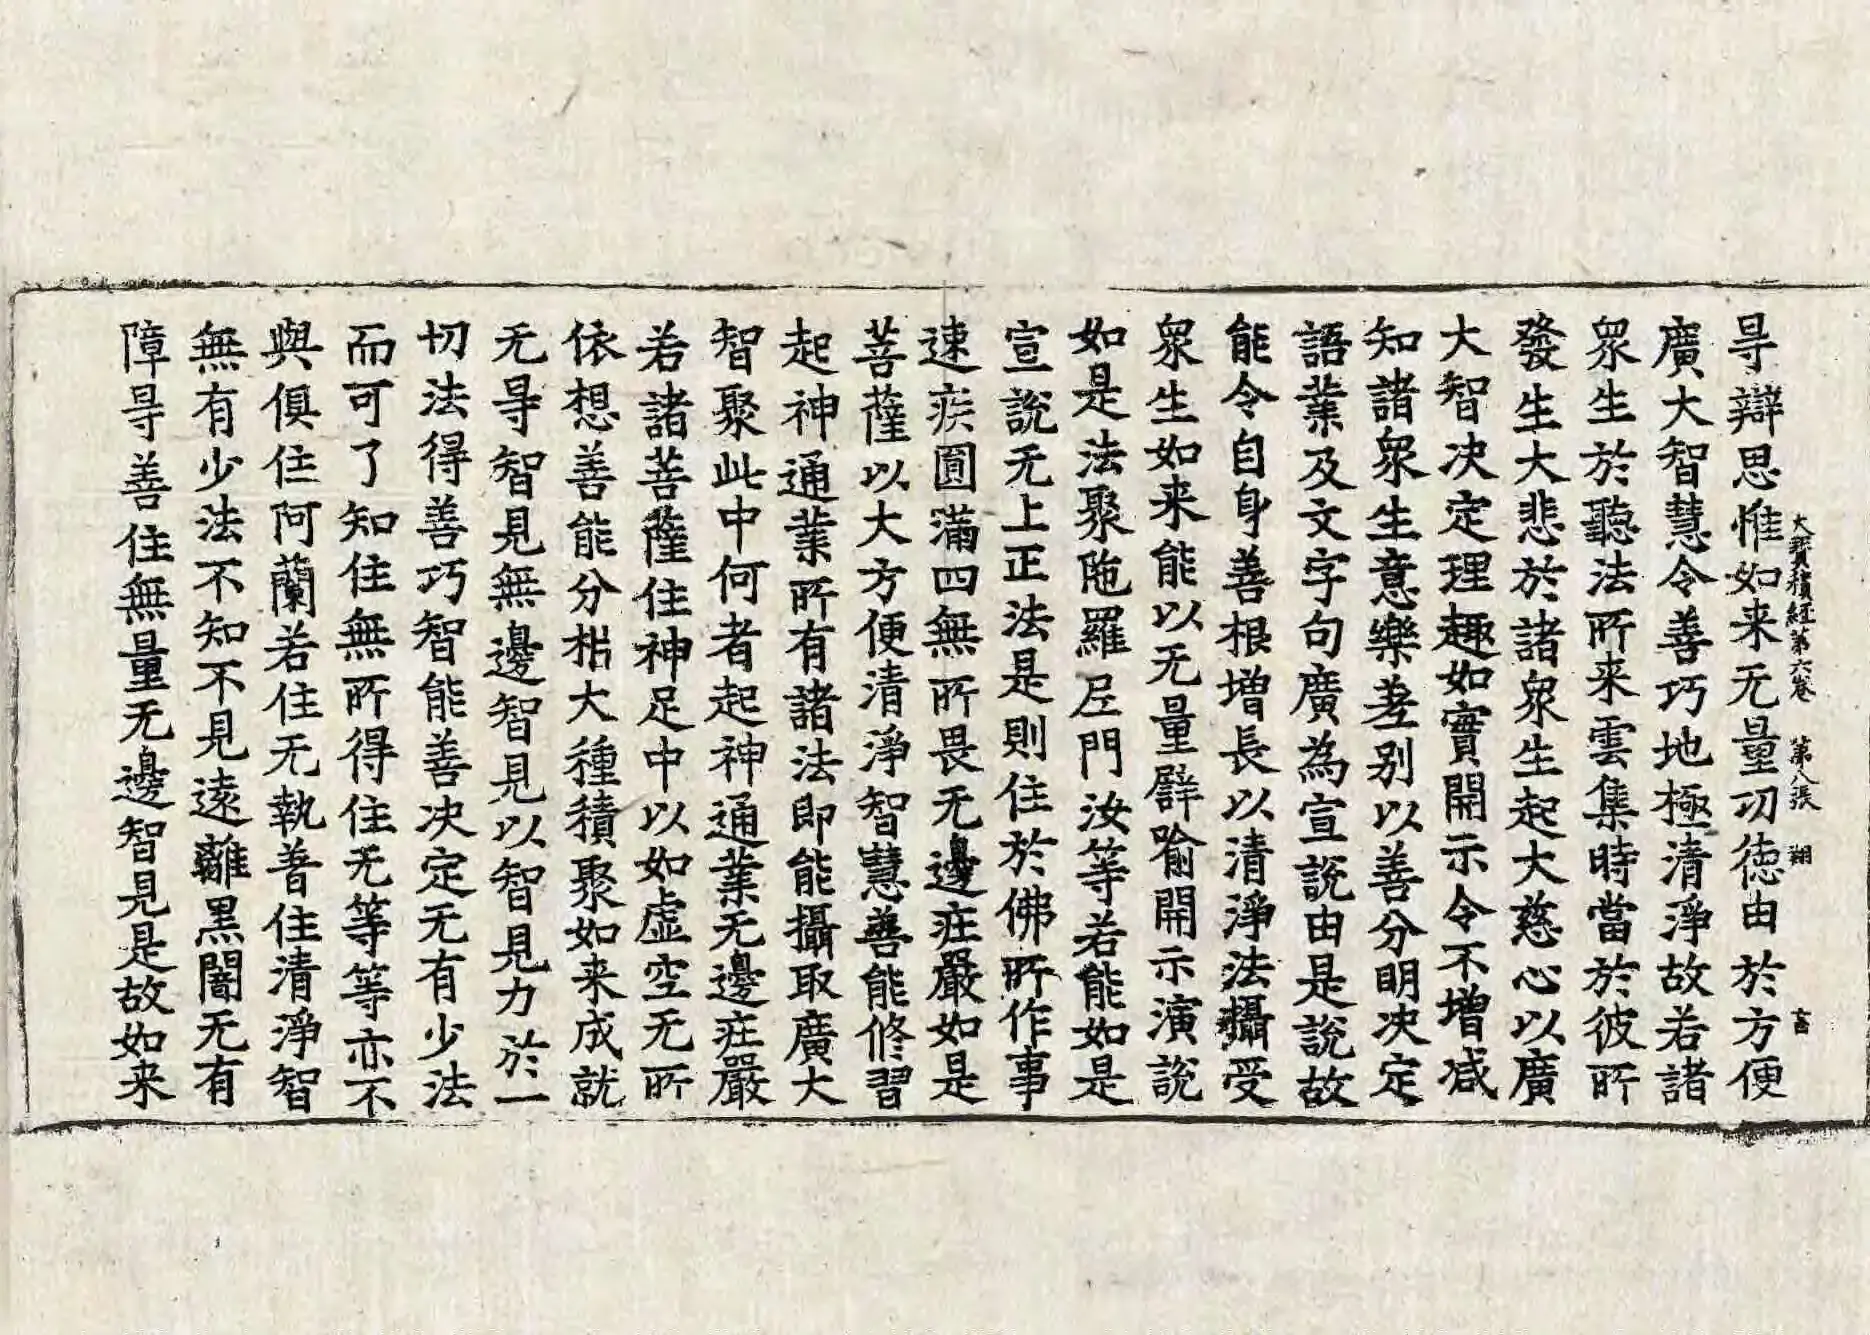 大寳積經第六卷 第八張 翔
㝵辯思惟如来无量㓛德由於方便
廣大智慧令善巧地極清淨故若諸
衆生於聽法所来雲集時當於彼所
發生大悲於諸衆生起大慈心以廣
大智决定理趣如實開示令不增减
知諸衆生意樂差别以善分明决定
語業及文字句廣為宣說由是說故
能令自身善根增長以清淨法攝受
衆生如来能以无量譬喻開示演說
如是法聚陁羅尼門汝等若能如是
宣說无上正法是則住於佛所作事
速疾圓滿四無所畏无邊莊嚴如是
菩薩以大方便清淨智慧善能修習
起神通業所有諸法即能攝取廣大
智聚此中何者起神通業无邊莊嚴
若諸菩薩住神足中以如虛空无所
依想善能分㭊大種積聚如来成就
无㝵智見無邊智見以智見力於一
切法得善巧智能善决定无有少法
而可了知住無所得住无等等亦不
與俱住阿蘭若住无執着住清淨智
無有少法不知不見遠離黑闇无有
障㝵善住無量无邊智見是故如来